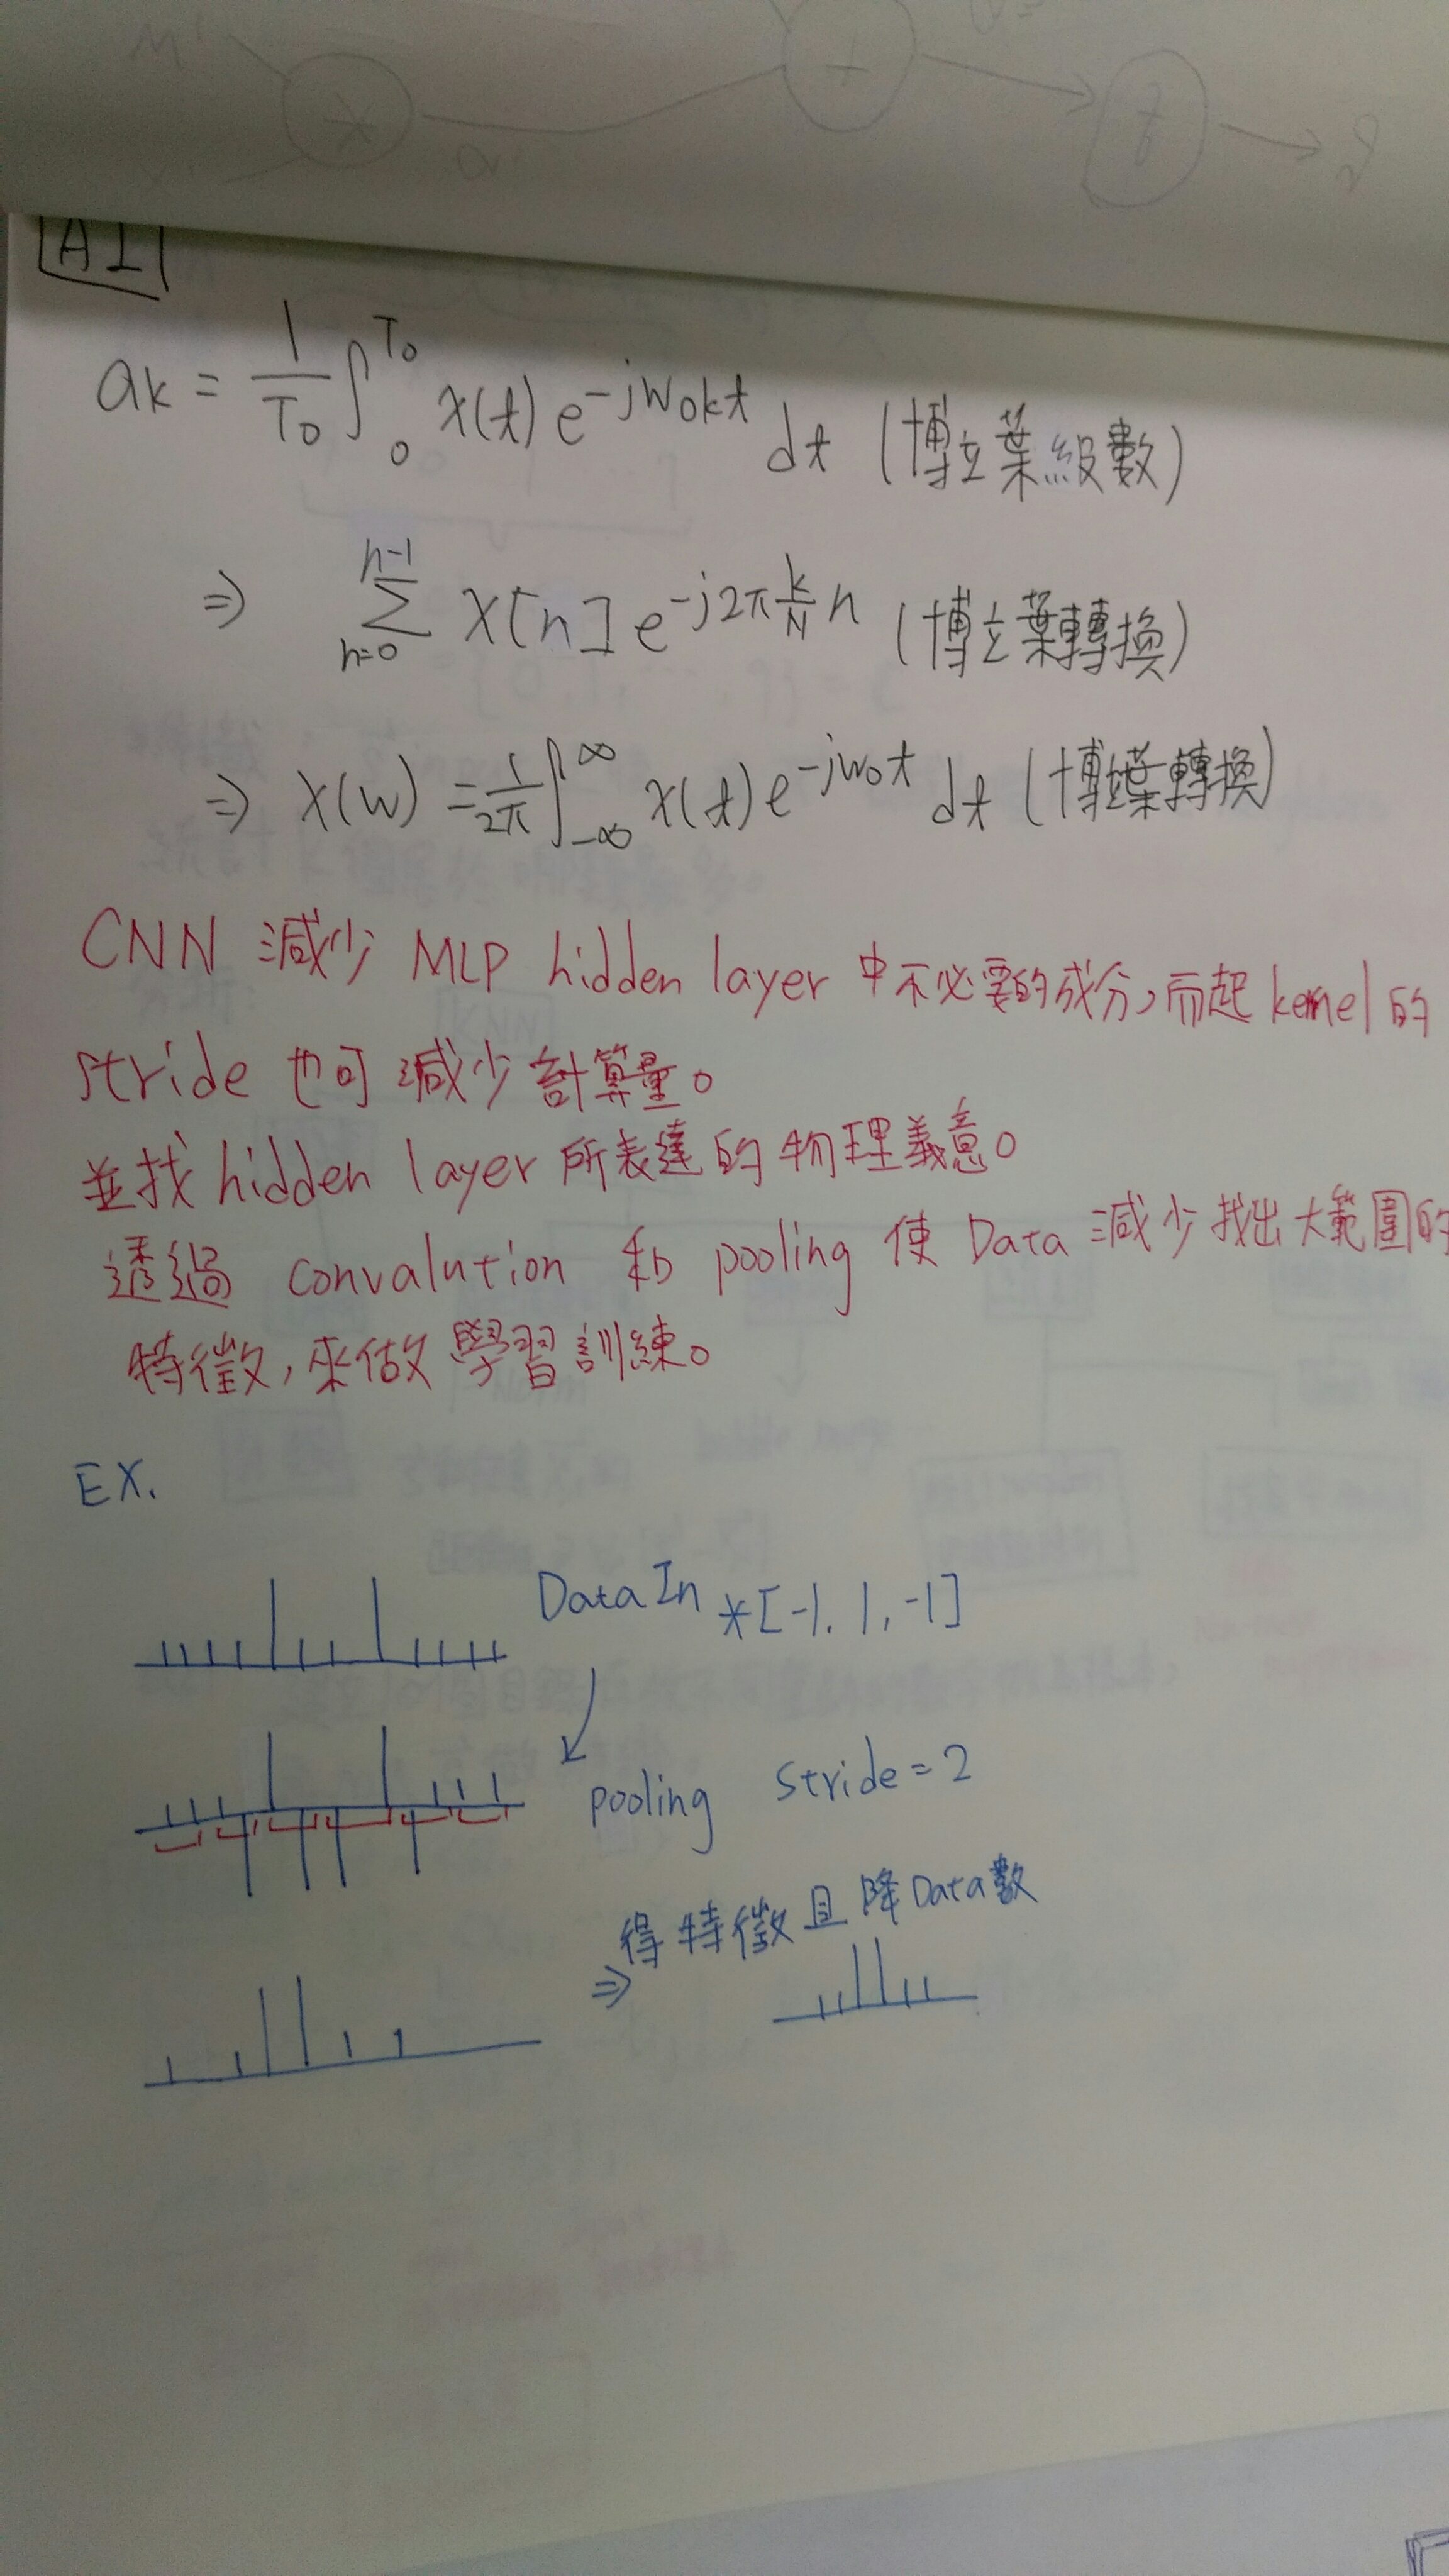 AI
ak = 1/T₀ ∫₀^T₀ x(t) e^-jw₀kt dt (博立葉級數)
⇒ Σ_{n=0}^{n-1} X[n] e^-j2π(k/N)n (博立葉轉換)
⇒ X(w) = 1/2π ∫_{-∞}^{∞} x(t) e^-jw₀t dt (博立葉轉換)
CNN 減少 MLP hidden layer 中不必要的成分,而起 kernel 的
stride 也可減少計算量。
並找 hidden layer 所表達的物理義意。
透過 convalution 和 pooling 使 Data 減少找出大範圍的
特徵,來做學習訓練。
EX.
Data In *[-1, 1, -1]
pooling stride=2
得特徵且降Data數
⇒